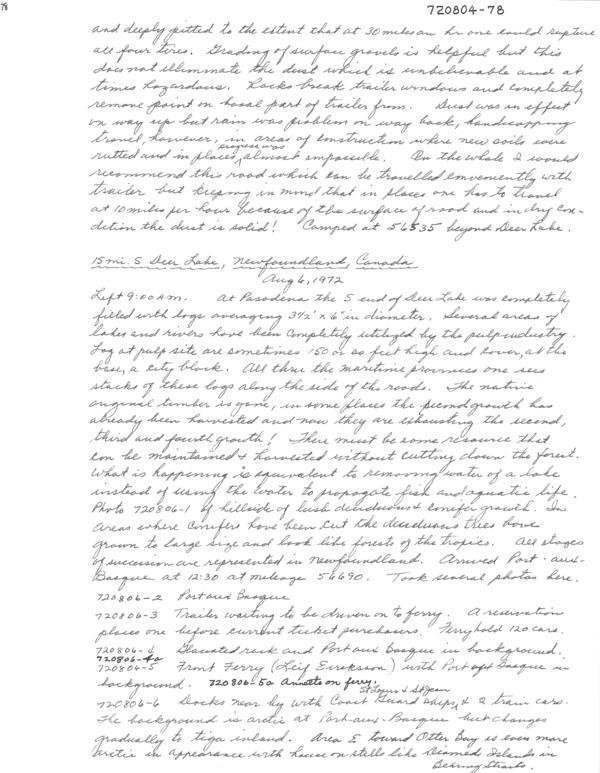 78
720804-78
and deeply pitted to the extent that at 30 miles an hr one could rupture
all four tires. Grading of surface gravels is helpful but this
does not illuminate the dust which is unbelievable and at
times hazardous. Rocks break trailer windows and completely
remove paint on basal part of trailer from. Dust was in effect
on way up but rain was problem on way back, handicapping
travel, however, in areas of construction where new soils were
rutted and in places progress was almost impossible. On the whole I would
recommend this road which can be travelled conveniently with
trailer but keeping in mind that in places one has to travel
at 10 miles per hour because of the surface of road and in dry con-
dition the dust is solid! Camped at 56535 beyond Deer Lake.
15 mi. S Deer Lake, Newfoundland, Canada
Aug 6, 1972
Left 9:00 A.M. At Pasadena the S end of Deer Lake was completely
filled with logs averaging 3½' x 6" in diameter. Several areas of
lakes and rivers have been completely utilized by the pulp industry.
Log at pulp site are sometimes 150 or so feet high and cover, at the
base, a city block. All thru the maritime provinces one sees
stacks of these logs along the side of the roads. The native
original timber is gone, in some places the second growth has
already been harvested and now they are exhausting the second,
third and fourth growth! There must be some resource that
can be maintained & harvested without cutting down the forest.
What is happening is equivalent to removing water of a lake
instead of using the water to propogate fish and aquatic life.
Photo 720806-1 of hillside of lush deciduous & conifer growth. In
areas where conifers have been cut the deciduous trees have
grown to large size and look like forests of the tropics. All stages
of succession are represented in Newfoundland. Arrived Port-aux-
Basque at 12:30 at mileage 56690. Took several photos here.
720806-2 Port aux Basque
720806-3 Trailer waiting to be driven on to ferry. A reservation
places one before current ticket purchasers. Ferry hold 120 cars.
720806-4 Glaciated rock and Port aux Basque in background.
720806-4a
720806-5 Front Ferry (Leif Eireksson) with Port aux Basque in
background. 720806-5a Annetta on ferry.
720806-6 Docks near by with Coast Guard ships St Louis & St Jean & 2 train cars.
The background is arctic at Port-aux-Basque but changes
gradually to tiga inland. Area E toward Otter Bay is even more
arctic in appearance with house on stells like Diamede Islands in
Behring Straits.